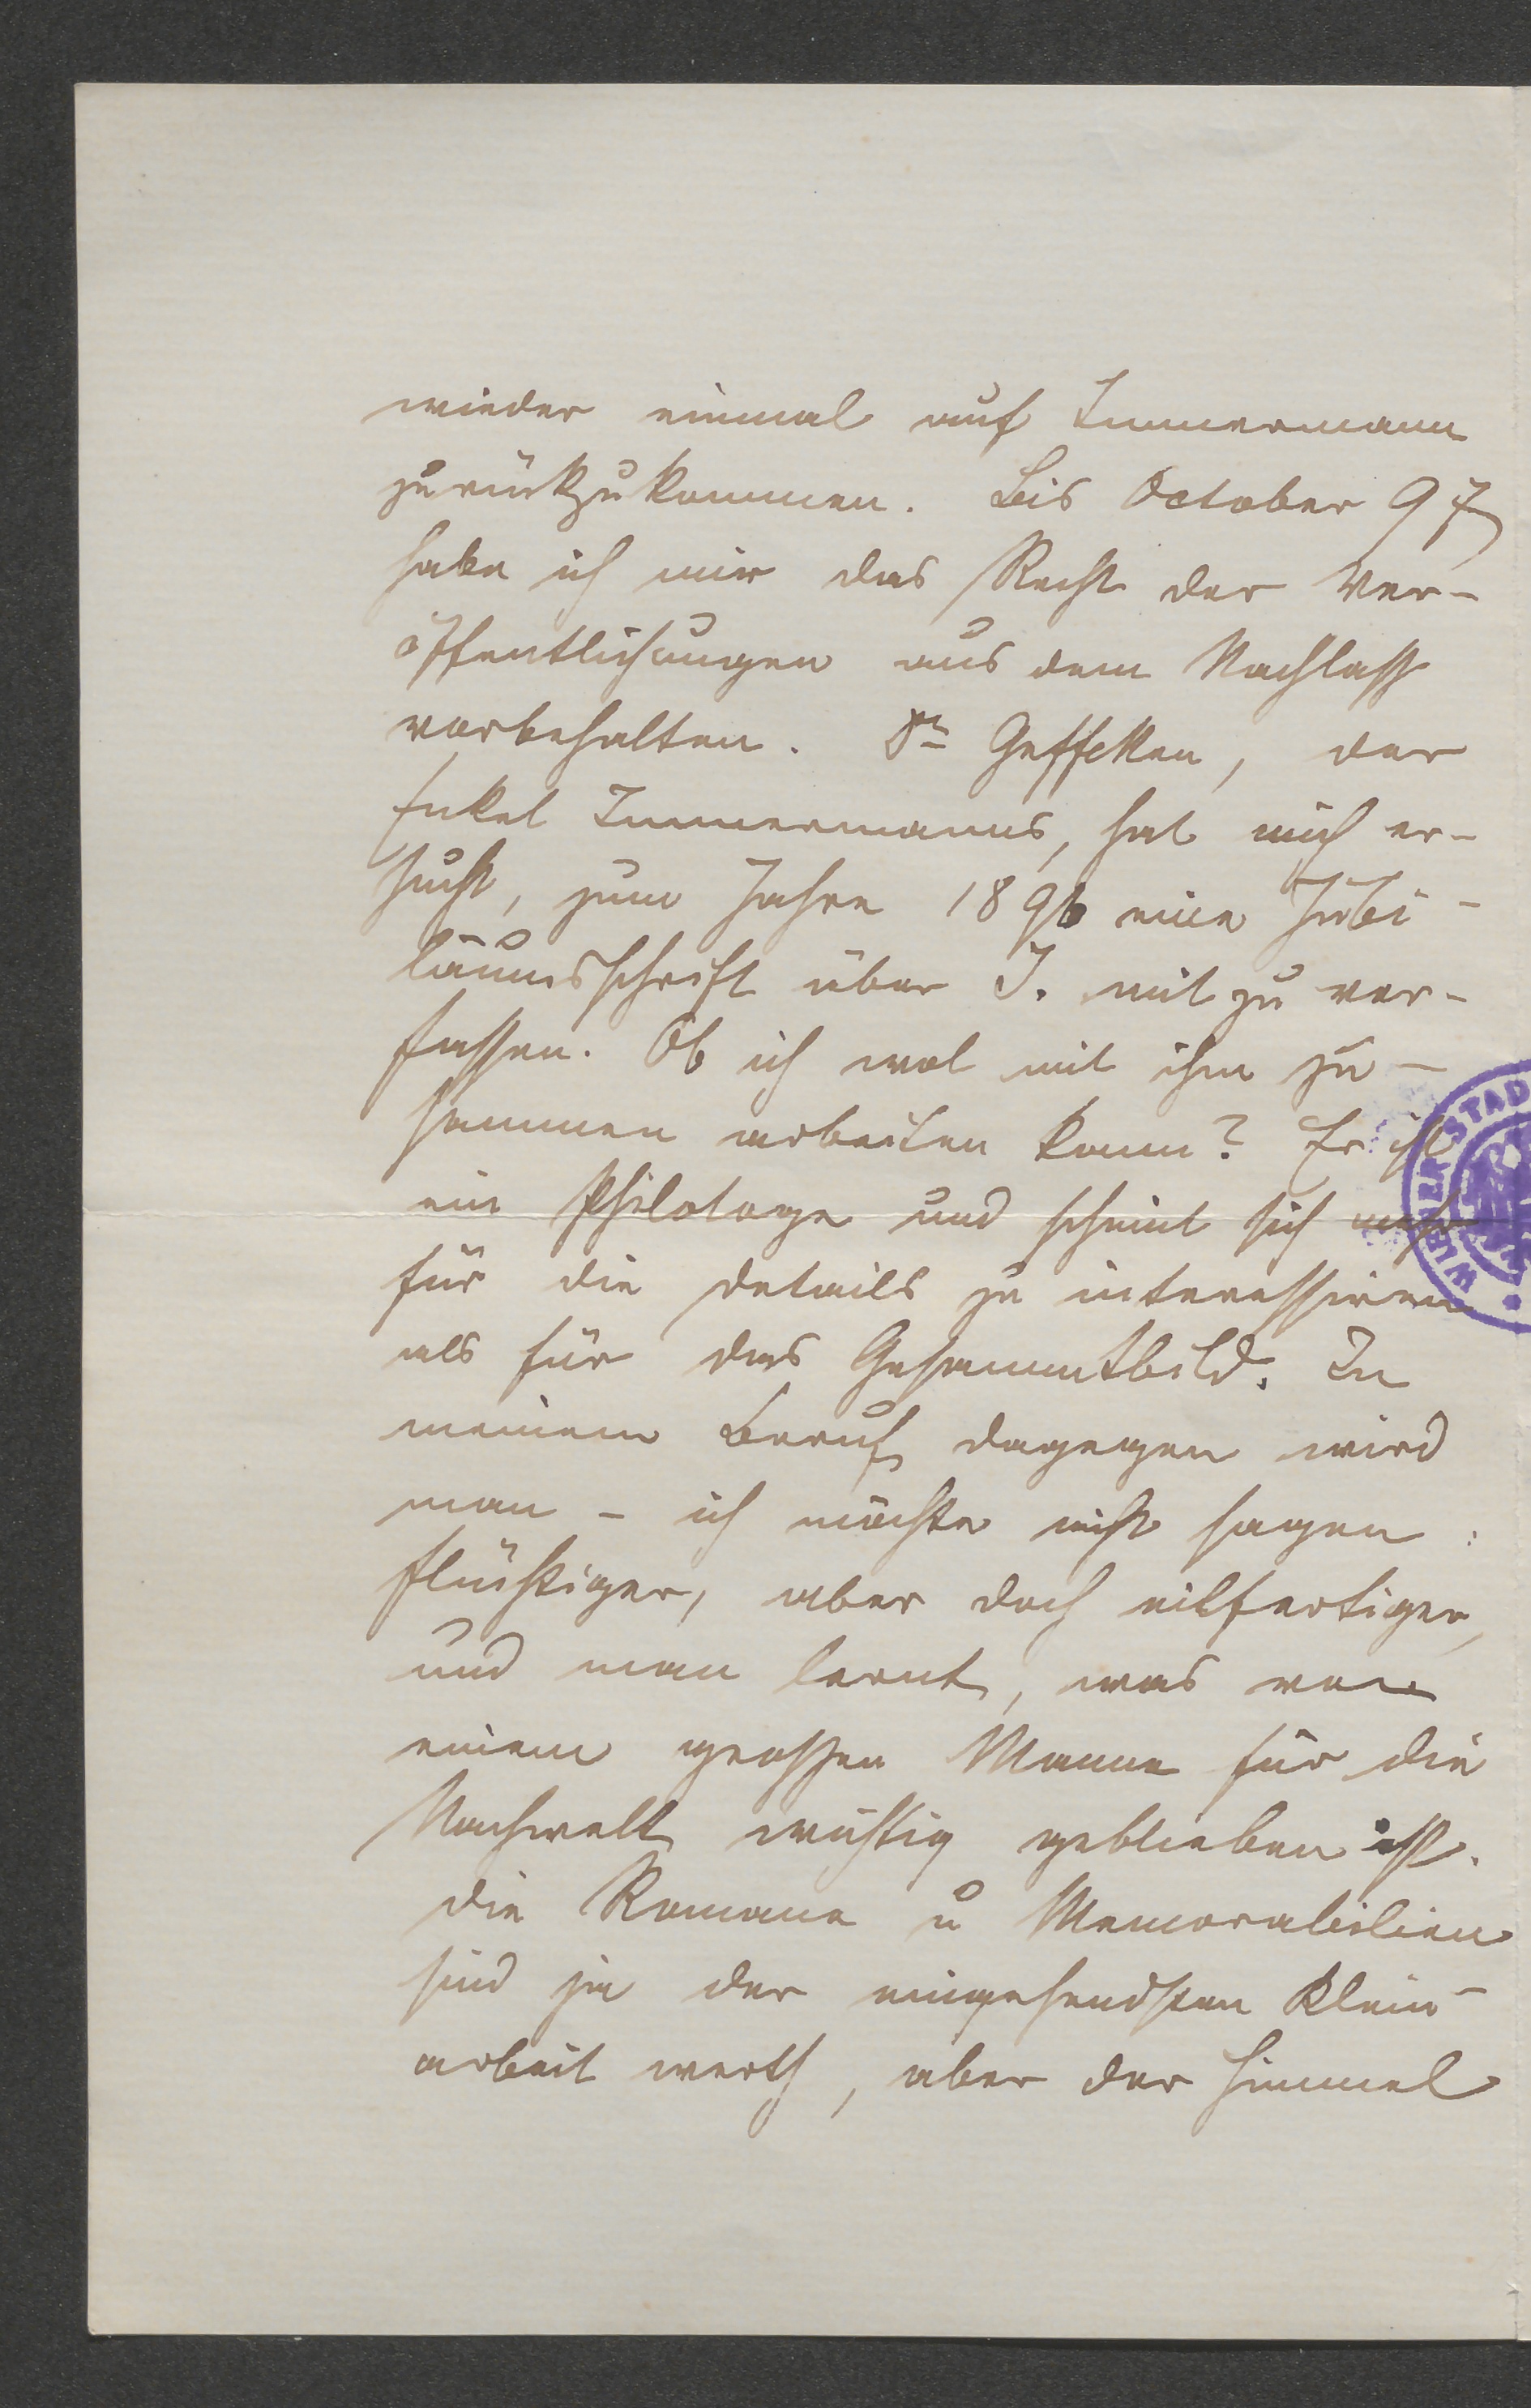 wieder einmal auf Immermann
zurückzukommen. Bis October 97
habe ich mir das Recht der Ver-
öffentlichungen aus dem Nachlass
vorbehalten. Dr Geffcken, der
Enkel Immermanns, hat mich er-
sucht, zum Jahre 1896 eine Jubi-
läumsschrift über I. mit zu ver-
fassen. Ob ich wol mit ihm zu-
sammen arbeiten kann? Er ist
ein Philologe und scheint sich mehr
für die Details zu interessiren
als für das Gesammtbild. In
meinem Beruf dagegen wird
man – ich möchte nicht sagen:
flüchtiger, aber doch eilfertiger,
und man lernt, was von
einem grossen Manne für die
Nachwelt wichtig geblieben ist.
Die Romane u Memorabilien
sind ja der eingehendsten Klein-
arbeit werth, aber der Himmel
WIENER STAD